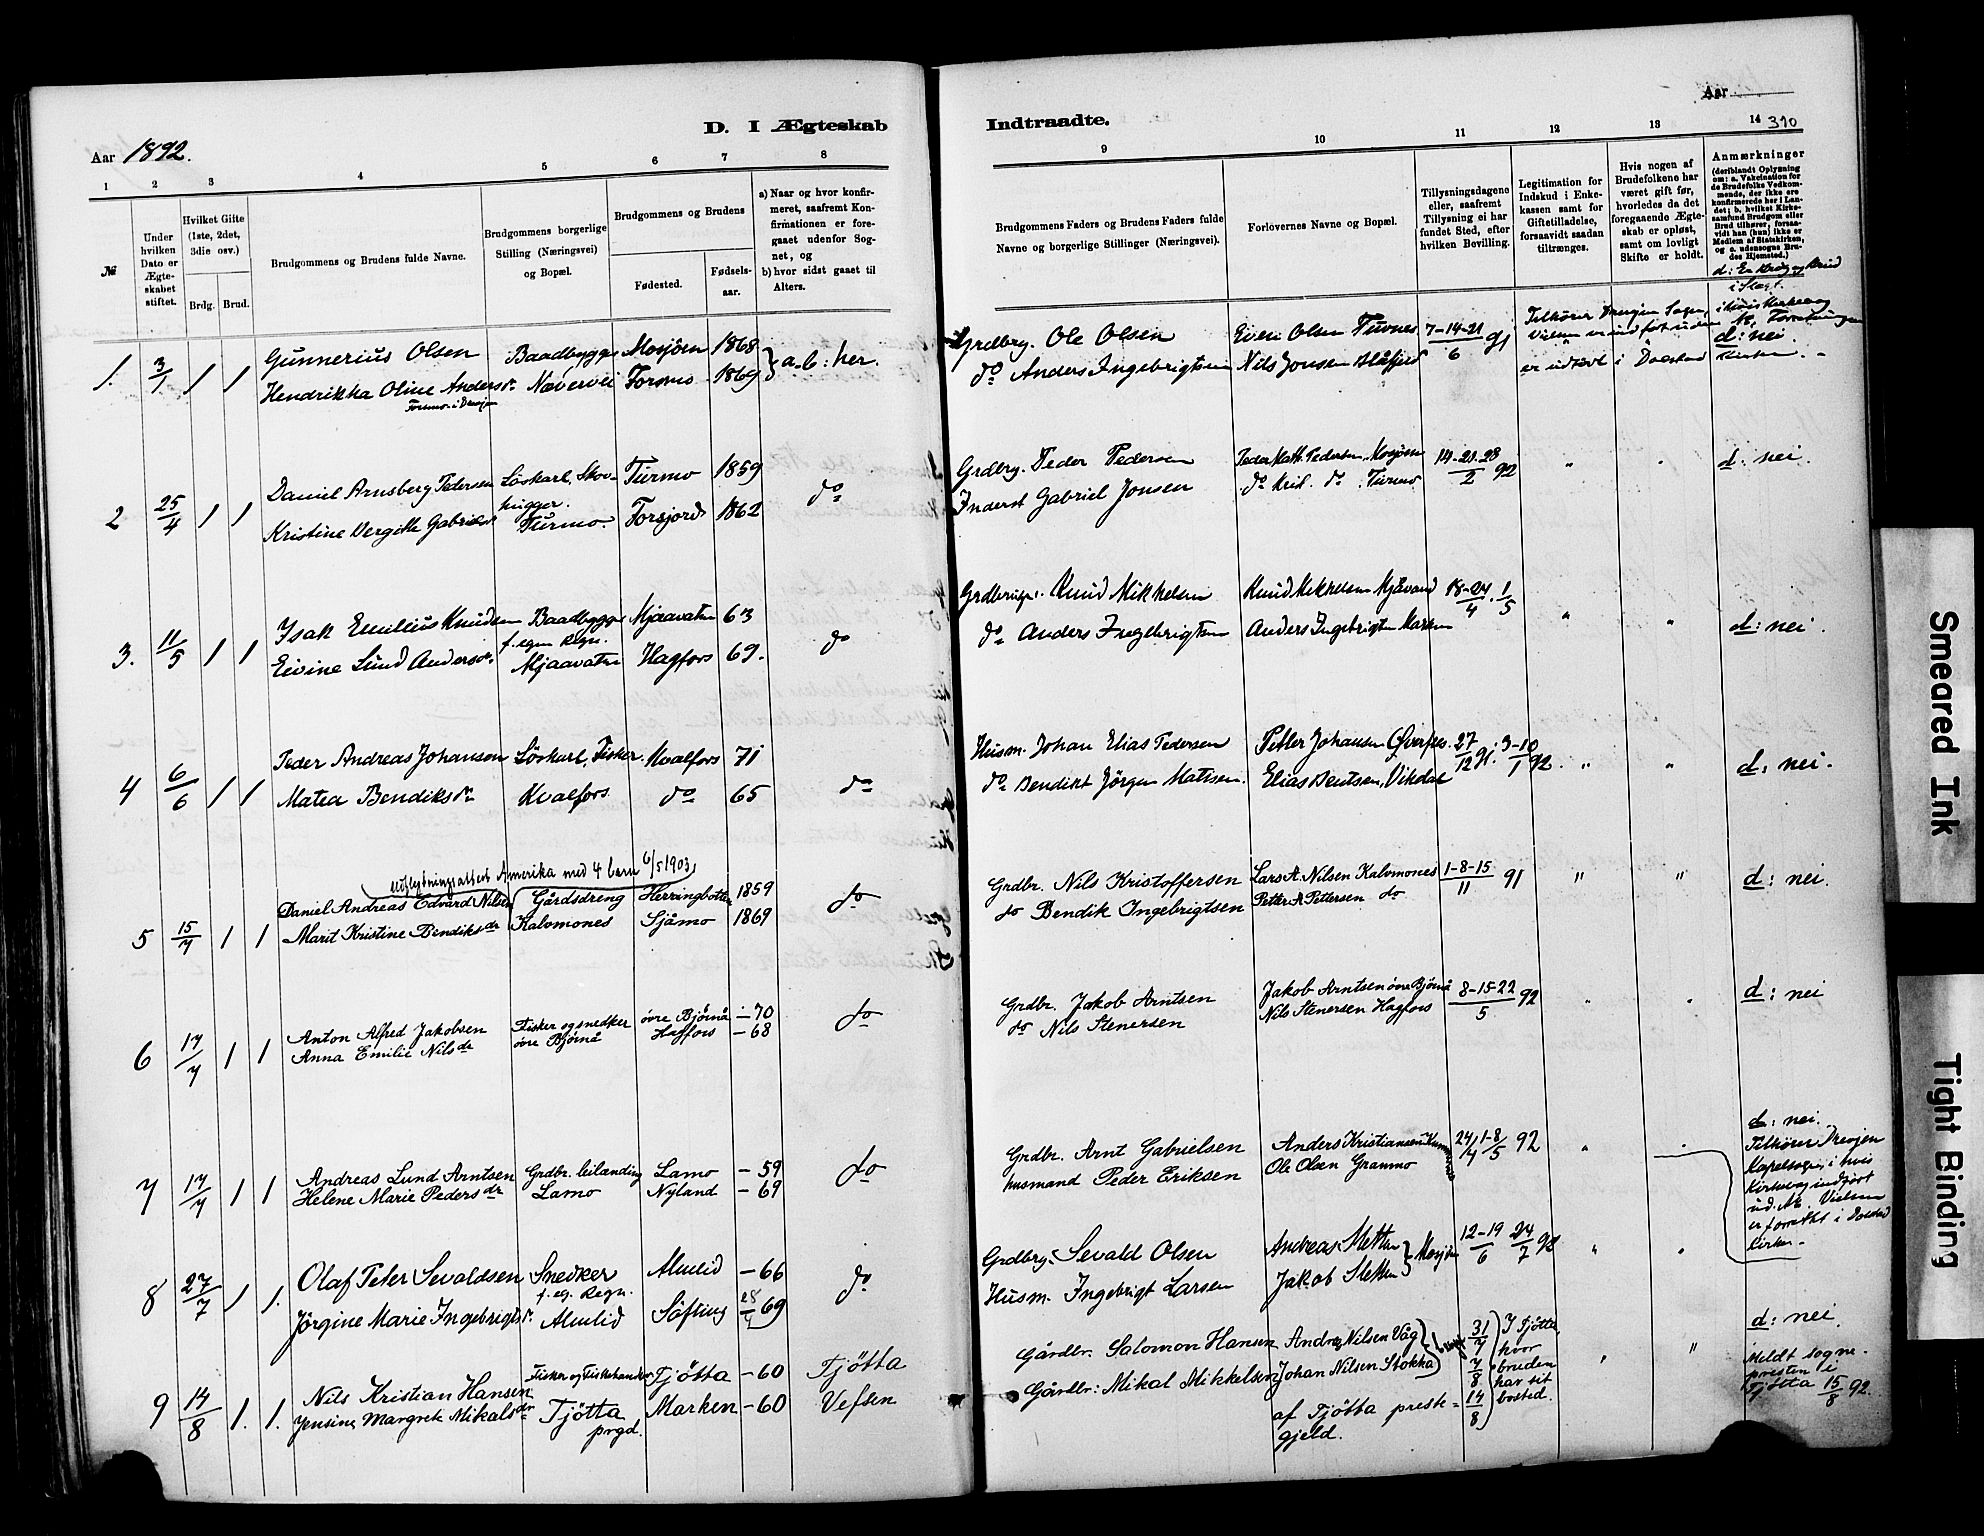 Aar 1892.
D. I Ægteskab
Indtraadte.
Aar
310
1 2 3 4 5 6 7 8
9 10 11 12 13 14
№
Under hvilken Dato er Ægteskabet stiftet.
Hvilket Gifte (1ste, 2det, 3die osv.)
Brdg. Brud.
Brudgommens og Brudens fulde Navne.
Brudgommens borgerlige Stilling (Næringsvei) og Bopæl.
Brudgommens og Brudens
Fødested.
Fødselsaar.
a) Naar og hvor konfirmeret, saafremt Konfirmationen er foregaaet udenfor Sognet, og
b) hvor sidst gaaet til Alters.
Brudgommens Faders og Brudens Faders fulde Navne og borgerlige Stillinger (Næringsvei).
Forlovernes Navne og Bopæl.
Tillysningsdagene eller, saafremt Tillysning ei har fundet Sted, efter hvilken Bevilling.
Legitimation for Indskud i Enkekassen samt for Giftetilladelse, forsaavidt saadan tiltrænges.
Hvis nogen af Brudefolkene har været gift før, hvorledes da det foregaaende Ægteskab er opløst, samt om lovligt Skifte er holdt.
Anmærkninger
(deriblandt Oplysning om: a. Vakcination for de Brudefolks Vedkommende, der ikke ere konfirmerede her i Landet; b. hvilket Kirkesamfund Brudgom eller Brud tilhører, forsaavidt han (hun) ikke er Medlem af Statskirken, og c. udensogns Brudes Hjemsted.)
d: Er Brdg og Brud i Slægt.
1. 3/1 1 1 Gunnerius Olsen Baadbygger Mosjøen 1868 } a.b: her. Grdbrg. Ole Olsen Even Olsen Turmo 7-14-21/6 91 d: nei.
Hendrikka Oline Andersdr. Nævervei Forsmo 1869 do Anders Ingebrigtsen Nils Jonsen
Forsmo i Drevjen
2 25/4 1 1 Daniel Arnsberg Pedersen Löskarl, Skovhugger. Turmo 1859 do Grdbrg. Peder Pedersen Peder Math. Pedersen, Mosjøen 14-21-28/2 92 " " d: nei.
Kristine Bergitte Gabrielsdr Turmo. Forsjord 1862 Inderst Gabriel Jonsen do Krist. do Turmo
3. 11/5 1 1 Isak Emilius Knudsen Baadbygger f. egen Regn. Mjaavatn 63 do Grdbruger. Knud Mikkelsen Knud Mikkelsen Mjåvand 18-24/4 . 1/5 " " d: nei.
Eivine Lund Andersdr. Mjaavatn Hagfors 69. do Anders Ingebrigtsen Anders Ingebrigtsen Marken
4 6/6 1 1 Peder Andreas Johansen Löskarl, Fisker. Kvalfors 71 do Husm. Johan Elias Pedersen Petter Johansen Øverfors. 27/12 91. 3-10/1 92. " " d: nei.
Matea Bendiksdr Kvalfors do 65 do Bendikt Jörgen Matisen. Elias Bentsen, Vikdal
Udflytningsattest Amerika med 4 barn 6/5 1903
5 15/7 1 1 Daniel Andreas Edvard Nilsen Gårdsdreng Herringbotten 1859 do Grdbr. Nils Kristoffersen Lars A. Nilsen Kalvmones 1-8-15/11 91 " " d: nei.
Marit Kristine Bendiksdr Kalvmones Sjåmo 1869 do Bendik Ingebrigtsen Petter A Pettersen do
6 17/7 1 1 Anton Alfred Jakobsen Fisker og snedker øvre Bjørnå -70 do Grdbr. Jakob Arntsen Jakob Arntsen øvre Bjørnå 8-15-22/5 92 " " d: nei
Anna Emilie Nilsdr øvre Bjørnå Hagfors -68 do Nils Stenersen Nils Stenersen Hagfors
7 17/7 1 1 Andreas Lund Arntsen Grdbr. leilænding Lamo -59 do Grdbr. Arnt Gabrielsen Anders Kristiansen 24/4 1-8/5 92 " " d: nei.
Helene Marie Pedersdr Lamo Nyland -69 husmand Peder Eriksen Ole Olsen Granmo
Tilhører Drevjen Kapelsogn, i hvis Kirkebog indført ud. №. Vielsen er forrettet i Dolstad Kirke.
8 27/7 1 1. Olaf Peter Sevaldsen Snedker f. eg. Regn. Almlid -66 do Grdbrg. Sevald Olsen Andreas Sletten } Mosjøen 12-19/6 24/7 92 " "
Jörgine Marie Ingebrigtsdr. Almlid Söfting -69 Husm. Ingebrigt Larsen Jakob Sletten
d: nei.
9 14/8 1. 1. Nils Kristian Hansen Fisker og Fiskehandler Tjøtta -60 Tjøtta Gårdbr. Salomon Hansen Andreas Nilsen Våg 31/7 7/8 14/8 I Tjøtta, hvor bruden har sit bosted. " "
Jensine Margrete Mikalsdr Tjötta prgd. Marken -60 Vefsen Gårdbr: Mikal Mikkelsen Johan Nilsen Stokka
af Tjötta præstegjeld.
Meldt sognepresten i Tjøtta 15/8 92.
Smeared Ink
Tight Binding